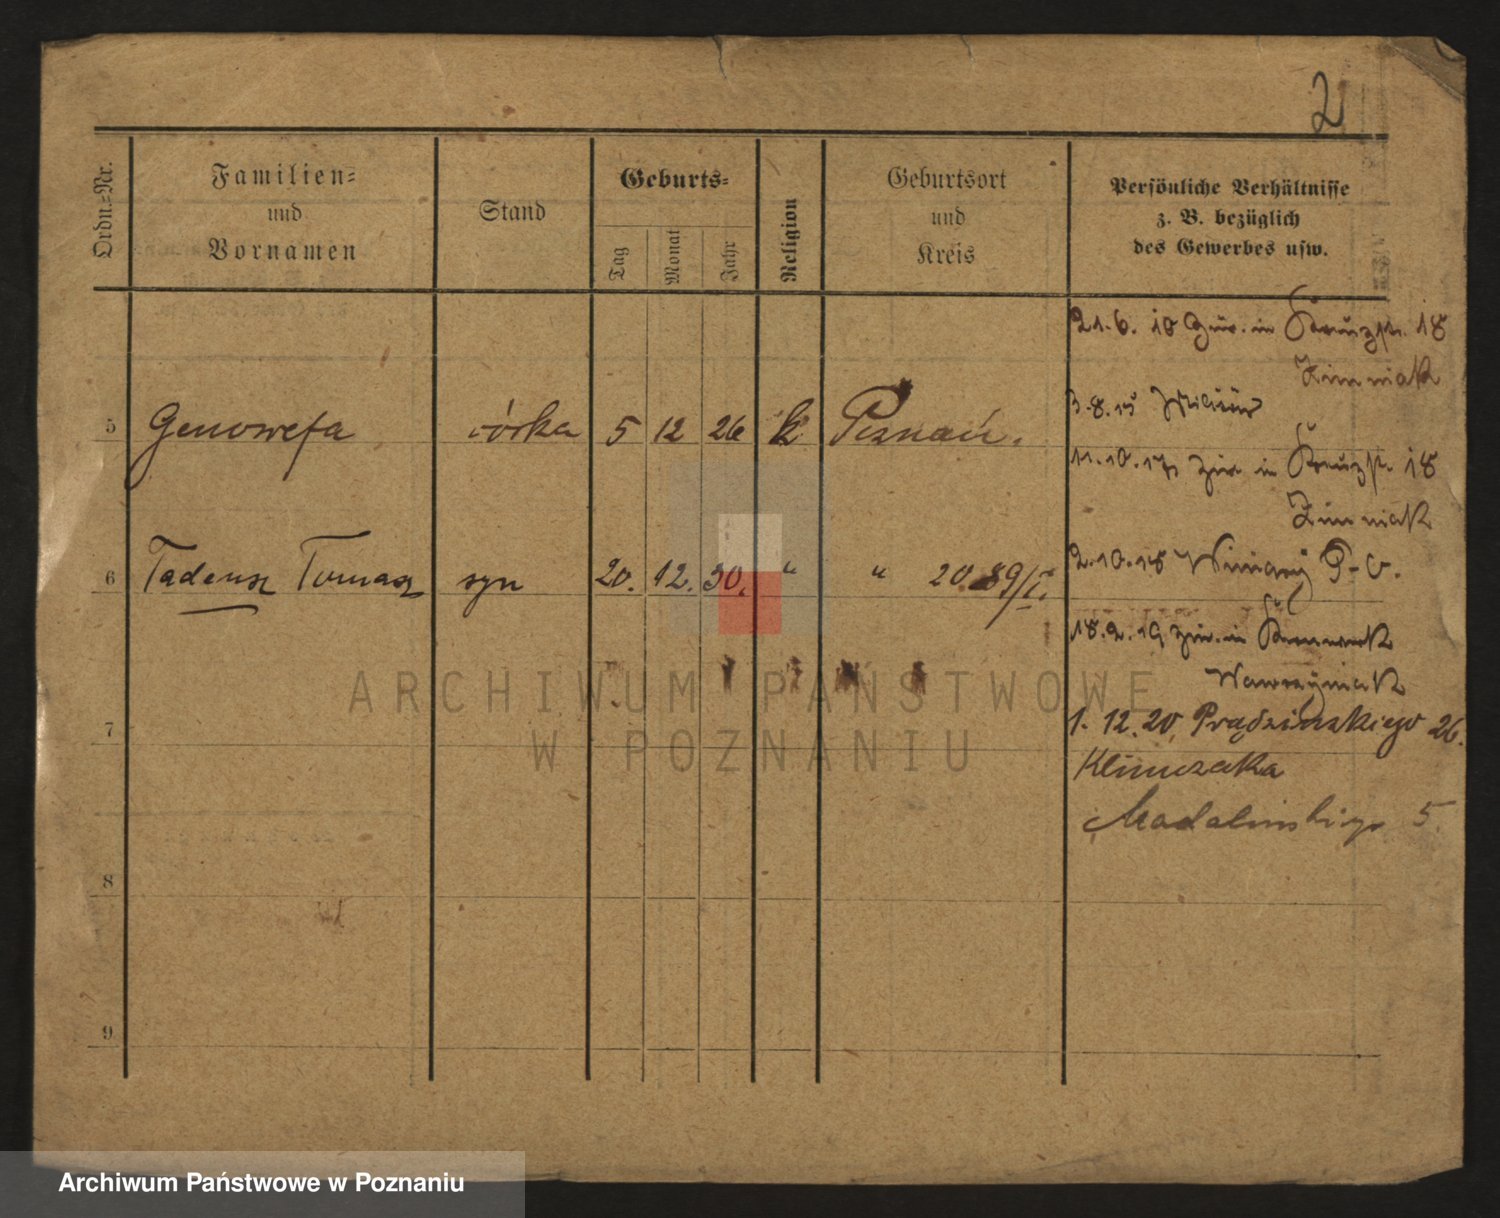 2
Ordn.=Nr.
Familien=
und
Vornamen
Stand
Geburts=
Tag
Monat
Jahr
Religion
Geburtsort
und
Kreis
Persönliche Verhältnisse
z. B. bezüglich
des Gewerbes usw.
21.6. in 18
Zimniak
3.8.15
5 Genowefa córka 5 12 26 k Poznań.
11.10.17 in 18
Zimniak
2.10.18
6 Tadeusz Tomasz syn 20. 12. 30. " " 20. 89/I.
18.2.19 in
Wawrzyniak
7
1. 12. 20 Prądzińskiego 26.
Klimczaka
Madalinskiego 5.
8
9
ARCHIWUM PAŃSTWOWE
W POZNANIU
Archiwum Państwowe w Poznaniu